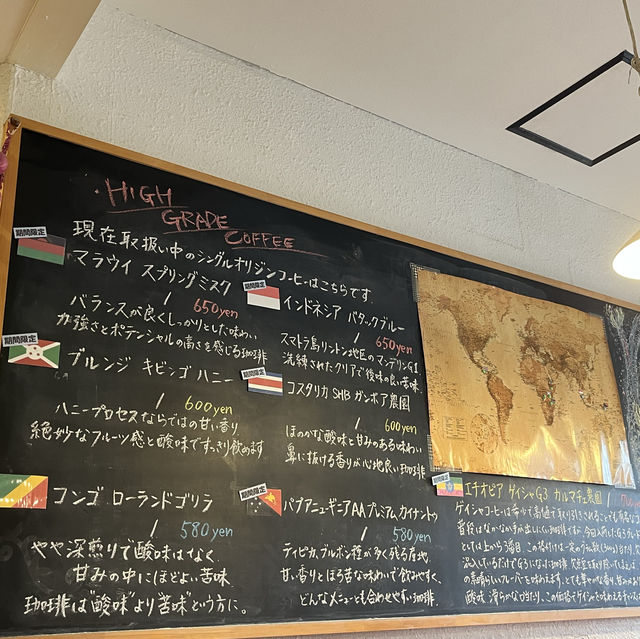 ・HIGH
GRADE
COFFEE
現在取扱い中のシングルオリジンコーヒーはこちらです
期間限定
マラウイ スプリングミスク
650yen
バランスが良くしっかりとした味わい
力強さとポテンシャルの高さを感じる珈琲
期間限定
インドネシア バタックブルー
650yen
スマトラ島リントン地区のマンデリンG1
洗練されたクリアで後味の良い苦味.
期間限定
ブルンジ キビンゴ ハニー
600yen
ハニープロセスならではの甘い香り
絶妙なフルーツ感と酸味ですっきり飲めます
期間限定
コスタリカ SHB ガンボア農園
600yen
ほのかな酸味と甘みのある味わい
鼻に抜ける香りが心地良い珈琲
コンゴ ローランドゴリラ
580yen
やや深煎りで酸味はなく.
甘みの中にほどよい苦味.
珈琲は"酸味"より苦味という方に。
期間限定
パプアニューギニアAAプレミアム カイナントゥ
580yen
ティピカ、ブルボン種が多く残る産地.
甘い香りとほろ苦な味わいで飲みやすく、
どんなメニューとも合わせやすい珈琲.
期間限定
エチオピア ゲイシャG3 カルマチェ農園
ゲイシャコーヒーは希少で高価で取り引きされることでも有名な
普段はなかなか手が出しにくい珈琲ですが、今回入荷したG3グレード